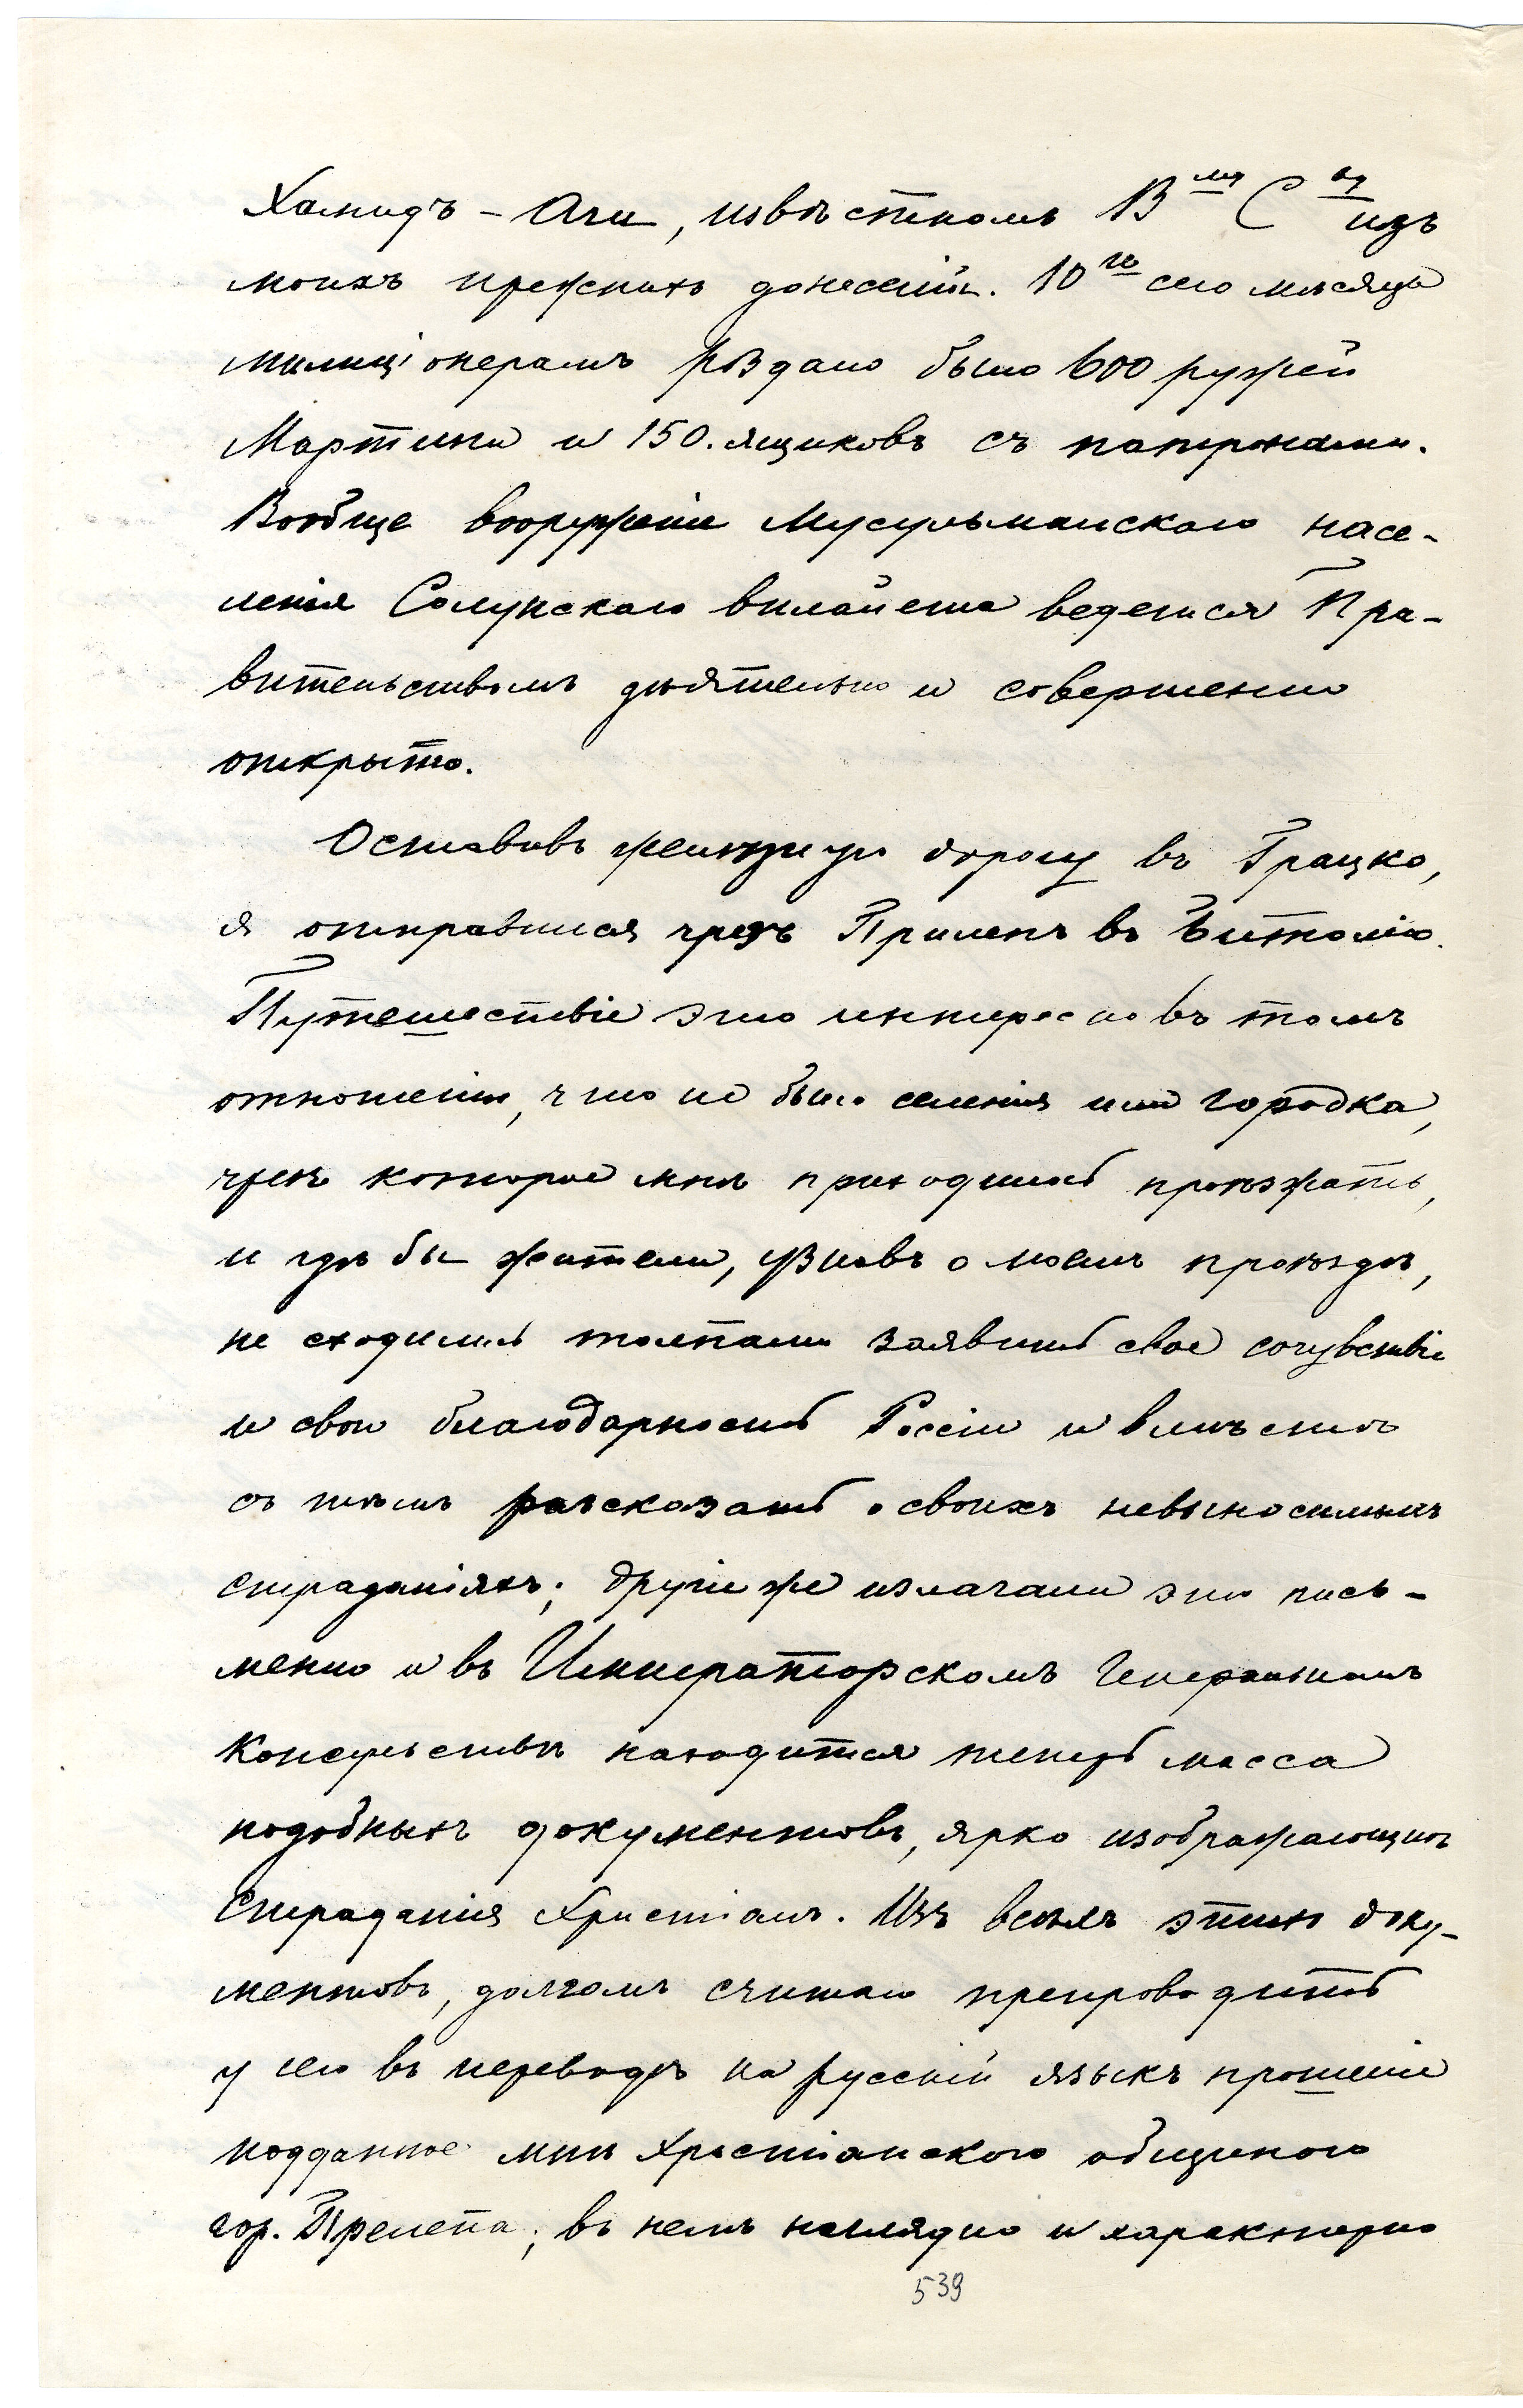 Хамидъ-Ага, извѣстномъ В<sup>му</sup> С<sup>ву</sup> изъ
моихъ прежнихъ донесеній. 10<sup>го</sup> сего мѣсяца
милиціонерамъ роздано было 600 ружей
Мартини и 150. ящиковъ съ патронами.
Вообще вооруженіе Мусульманскаго насе-
ленія Солунскаго вилайета ведется Пра-
вительствомъ дѣятельно и совершенно
открыто.
Оставивъ желѣзную дорогу въ Грацко,
я отправился чрезъ Прилепъ въ Битолію.
Путешествіе это интересно въ томъ
отношеніи, что не было селенія или городка,
чрезъ которое мнѣ приходилось проѣзжать,
и гдѣ бы жители, узнавъ о моемъ проѣздѣ,
не сходились толпами заявить свое сочувствіе
и свою благодарность Россіи и вмѣстѣ
съ тѣмъ разсказать о своихъ невыносимыхъ
страданіяхъ; другіе же излагали это пись-
менно и въ Императорскомъ Генеральномъ
Консульствѣ находится теперь масса
подобныхъ документовъ, ярко изображающихъ
страданія Христіанъ. Изъ всѣхъ этихъ доку-
ментовъ, долгомъ считаю препроводить
у сего въ переводѣ на русскій языкъ прошеніе
подданное мнѣ Христіанскою общиною
гор. Прилепа; въ немъ наглядно и характерно
539